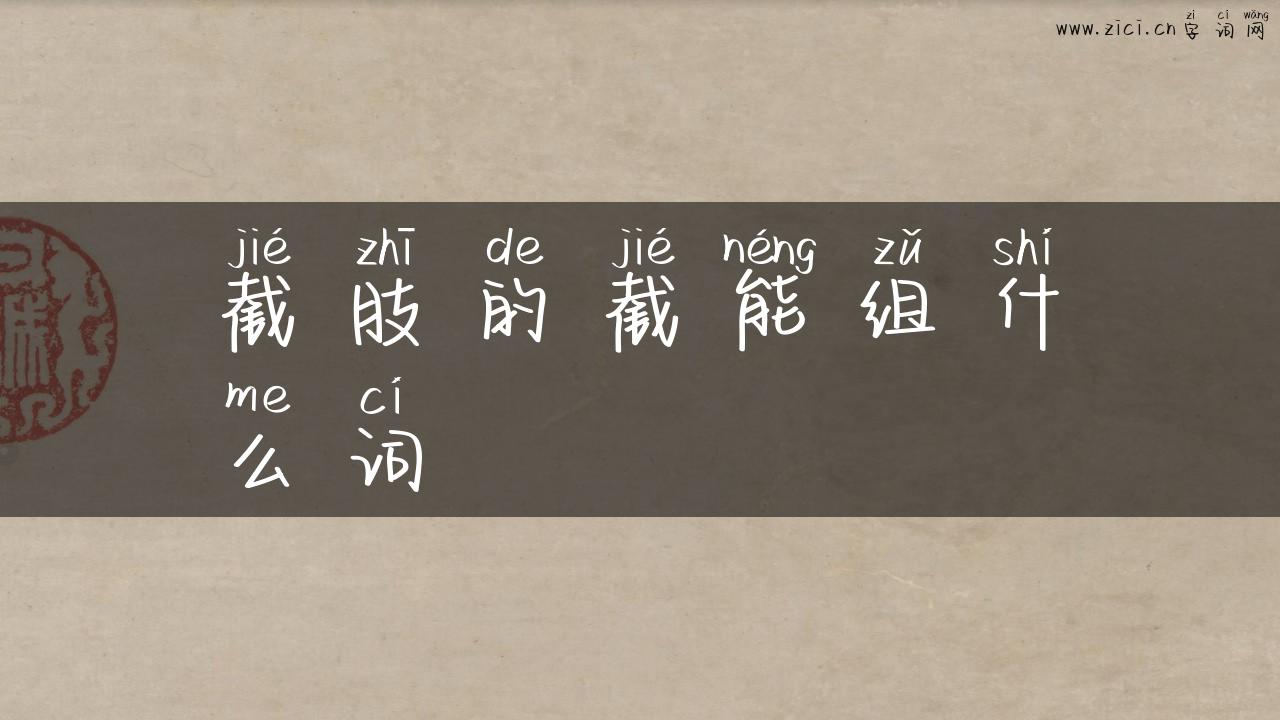 zì cí wǎng
www.zici.cn字词网
jié zhī de jié néng zǔ shí
截肢的截能组什
me cí
么词